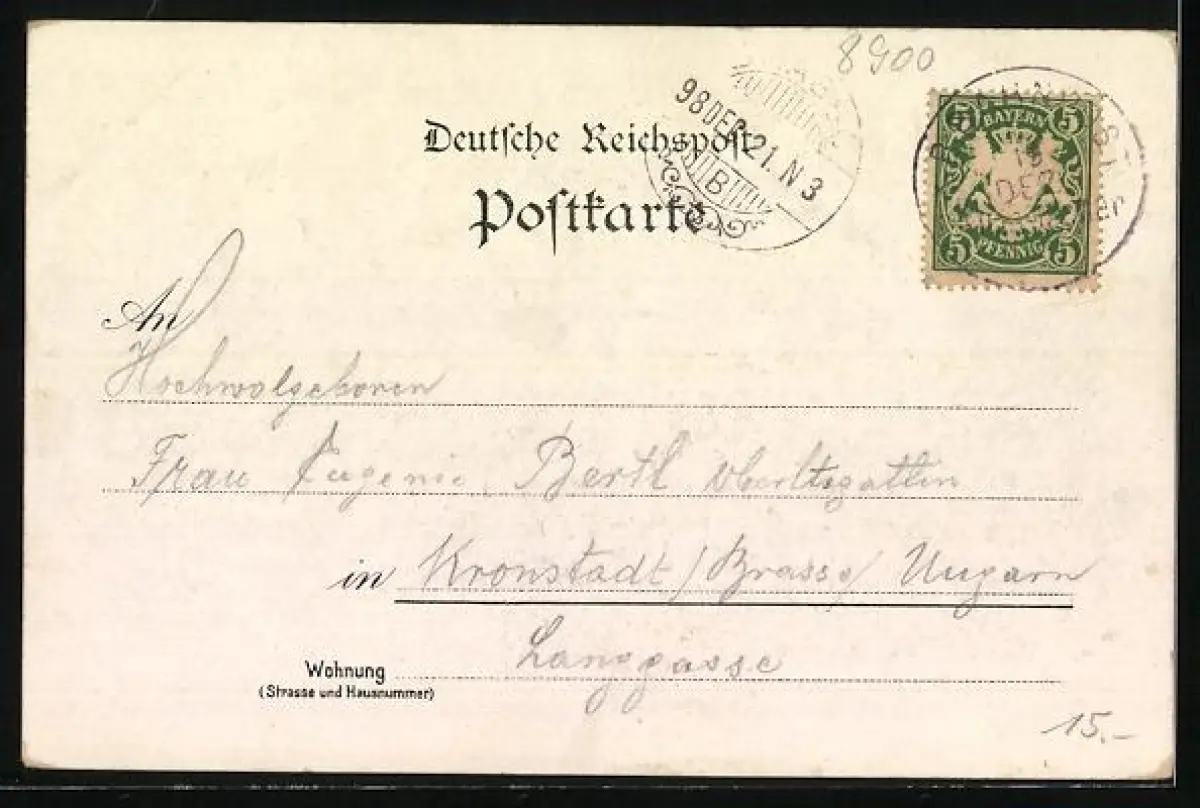 8900
Deutsche Reichspost
Postkarte
98 DEC. 21. N 3
B
5 BAYERN 5
DEZ
5 PFENNIG 5
An
Hochwolgeboren
Frau Eugenie Bertl Oberltsgattin
in Kronstadt / Brasso / Ungarn
Langgasse
Wohnung
(Strasse und Hausnummer)
15.-